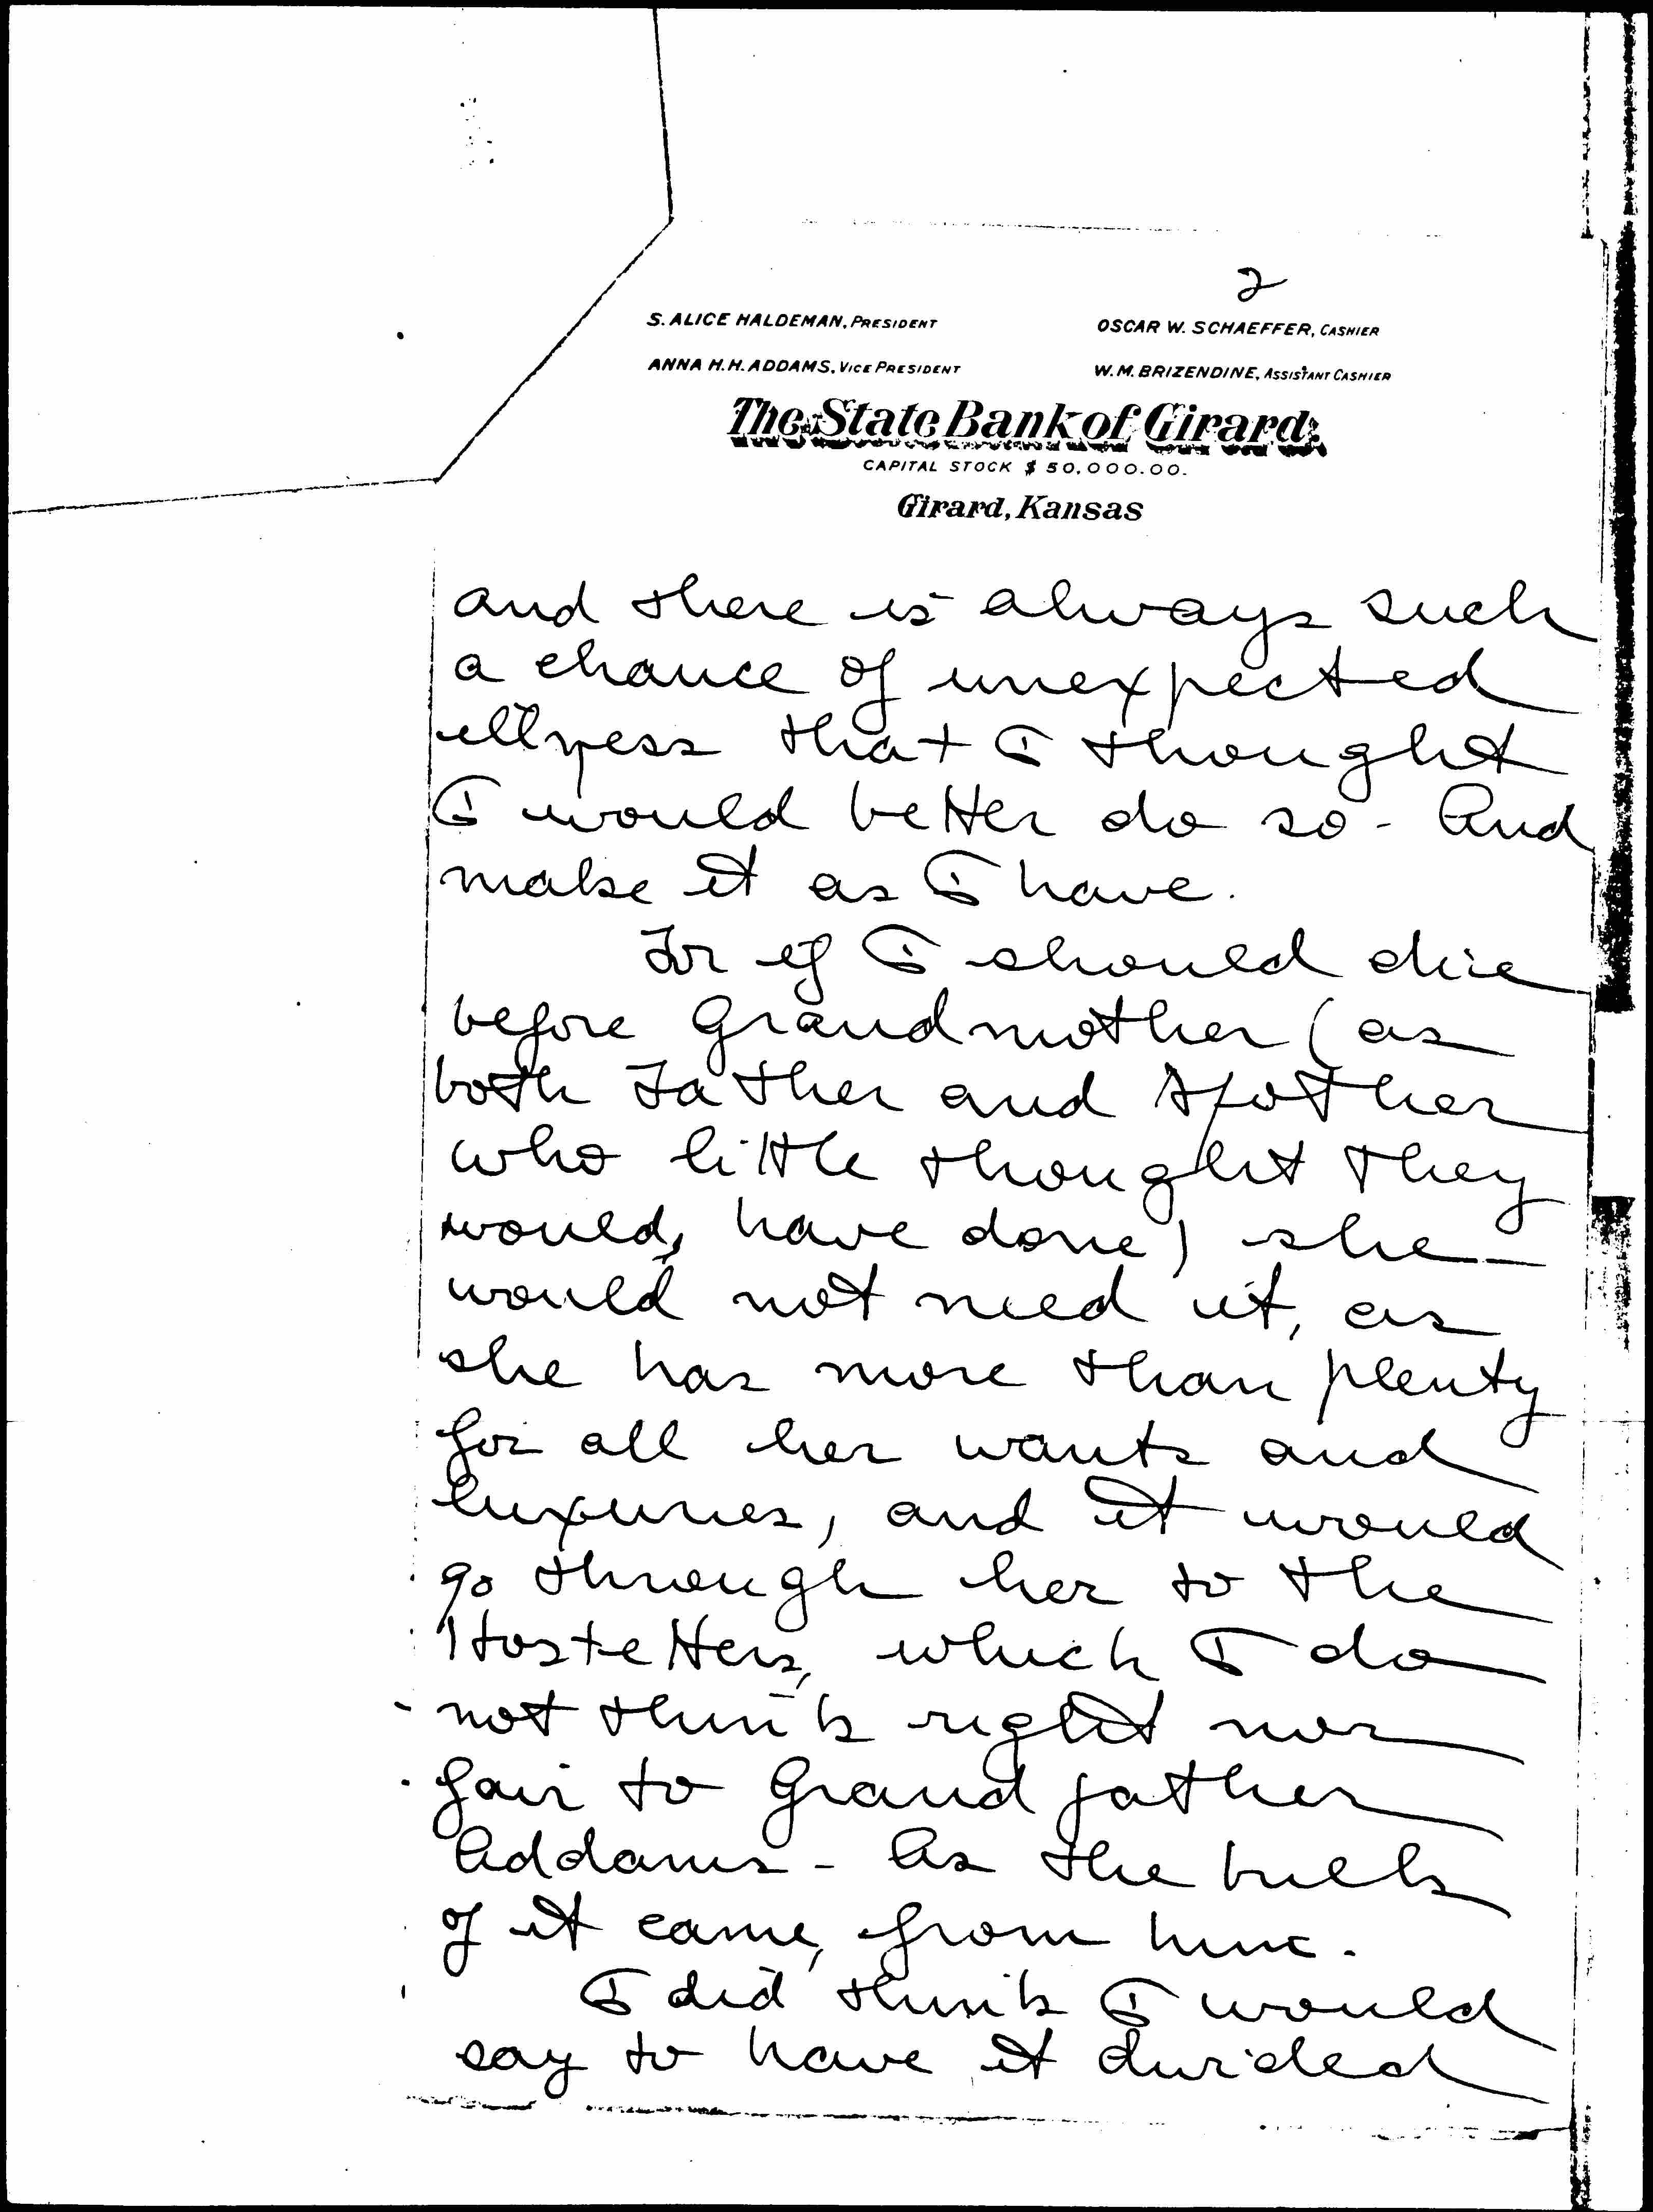 2
S. ALICE HALDEMAN, PRESIDENT
OSCAR W. SCHAEFFER, CASHIER
ANNA H. H. ADDAMS, VICE PRESIDENT
W. M. BRIZENDINE, ASSISTANT CASHIER
The State Bank of Girard,
CAPITAL STOCK $50,000.00.
Girard, Kansas
and there is always such
a chance of unexpected
illness that I thought
I would better do so - And
make it as I have.
For if I should die
before Grandmother (as
both Father and Mother
who little thought they
would, have done) she
would not need it, as
she has more than plenty
for all her wants and
luxuries, and it would
go through her to the
Hostetters, which I do
not think right nor
fair to Grandfather
Addams - As the bulk
of it came, from him.
I did think I would
say to have it divided